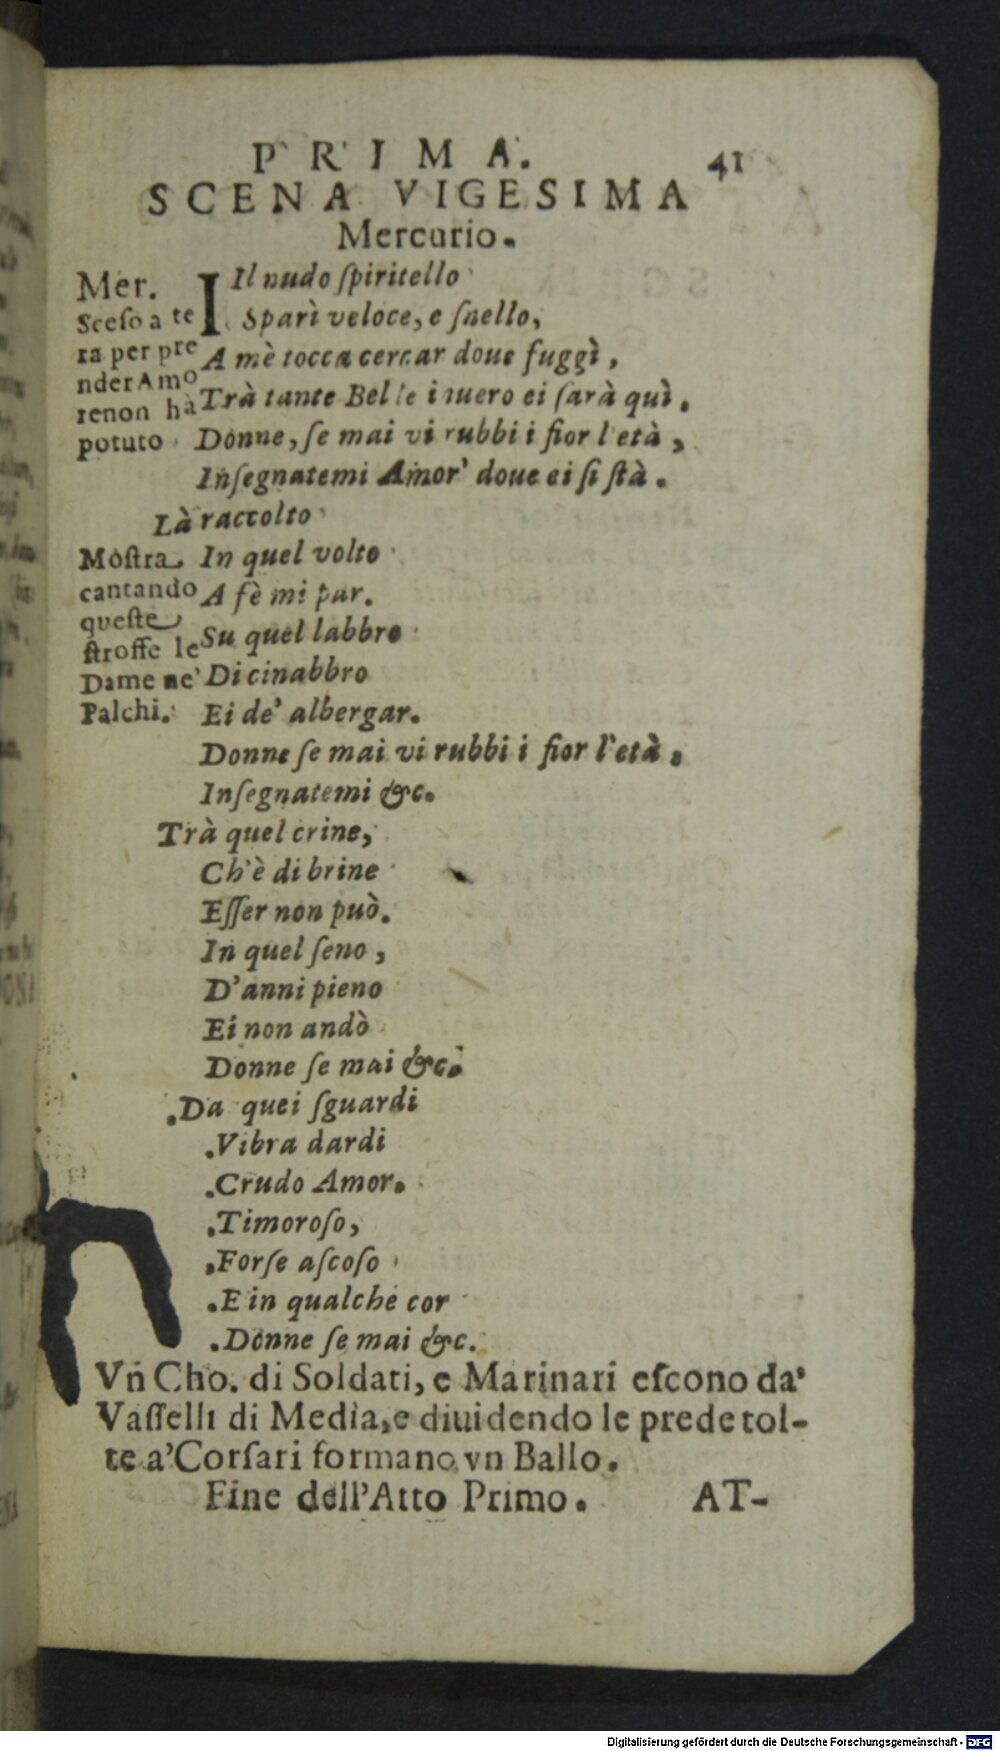 PRIMA. 41
SCENA VIGESIMA
Mercurio.
Mer. IIl nudo ſpiritello
Sceſo a te Sparì veloce, e ſnello,
ra per pre A mè tocca cercar doue fuggì,
nder Amo
Trà tante Belle i nuero ei ſarà quì.
re non hà
potuto Donne, ſe mai vi rubbi i fior l'età,
Inſegnatemi Amor' doue ei ſi ſtà.
Là raccolto
Moſtra In quel volto
cantando A fè mi par.
queſte
Su quel labbro
ſtroffe le
Dame ne' Di cinabbro
Palchi. Ei de' albergar.
Donne ſe mai vi rubbi i fior l'età.
Inſegnatemi &c.
Trà quel crine,
Ch'è di brine
Eſſer non può.
In quel ſeno,
D'anni pieno
Ei non andò
Donne ſe mai &c.
.Da quei ſguardi
.Vibra dardi
.Crudo Amor.
.Timoroſo,
,Forſe aſcoſo
.E in qualche cor
.Donne ſe mai &c.
Vn Cho. di Soldati, e Marinari eſcono da'
Vaſſelli di Media, e diuidendo le prede tol-
te a' Corſari formano vn Ballo.
Fine dell'Atto Primo. AT-
Digitalisierung gefördert durch die Deutsche Forschungsgemeinschaft - DFG